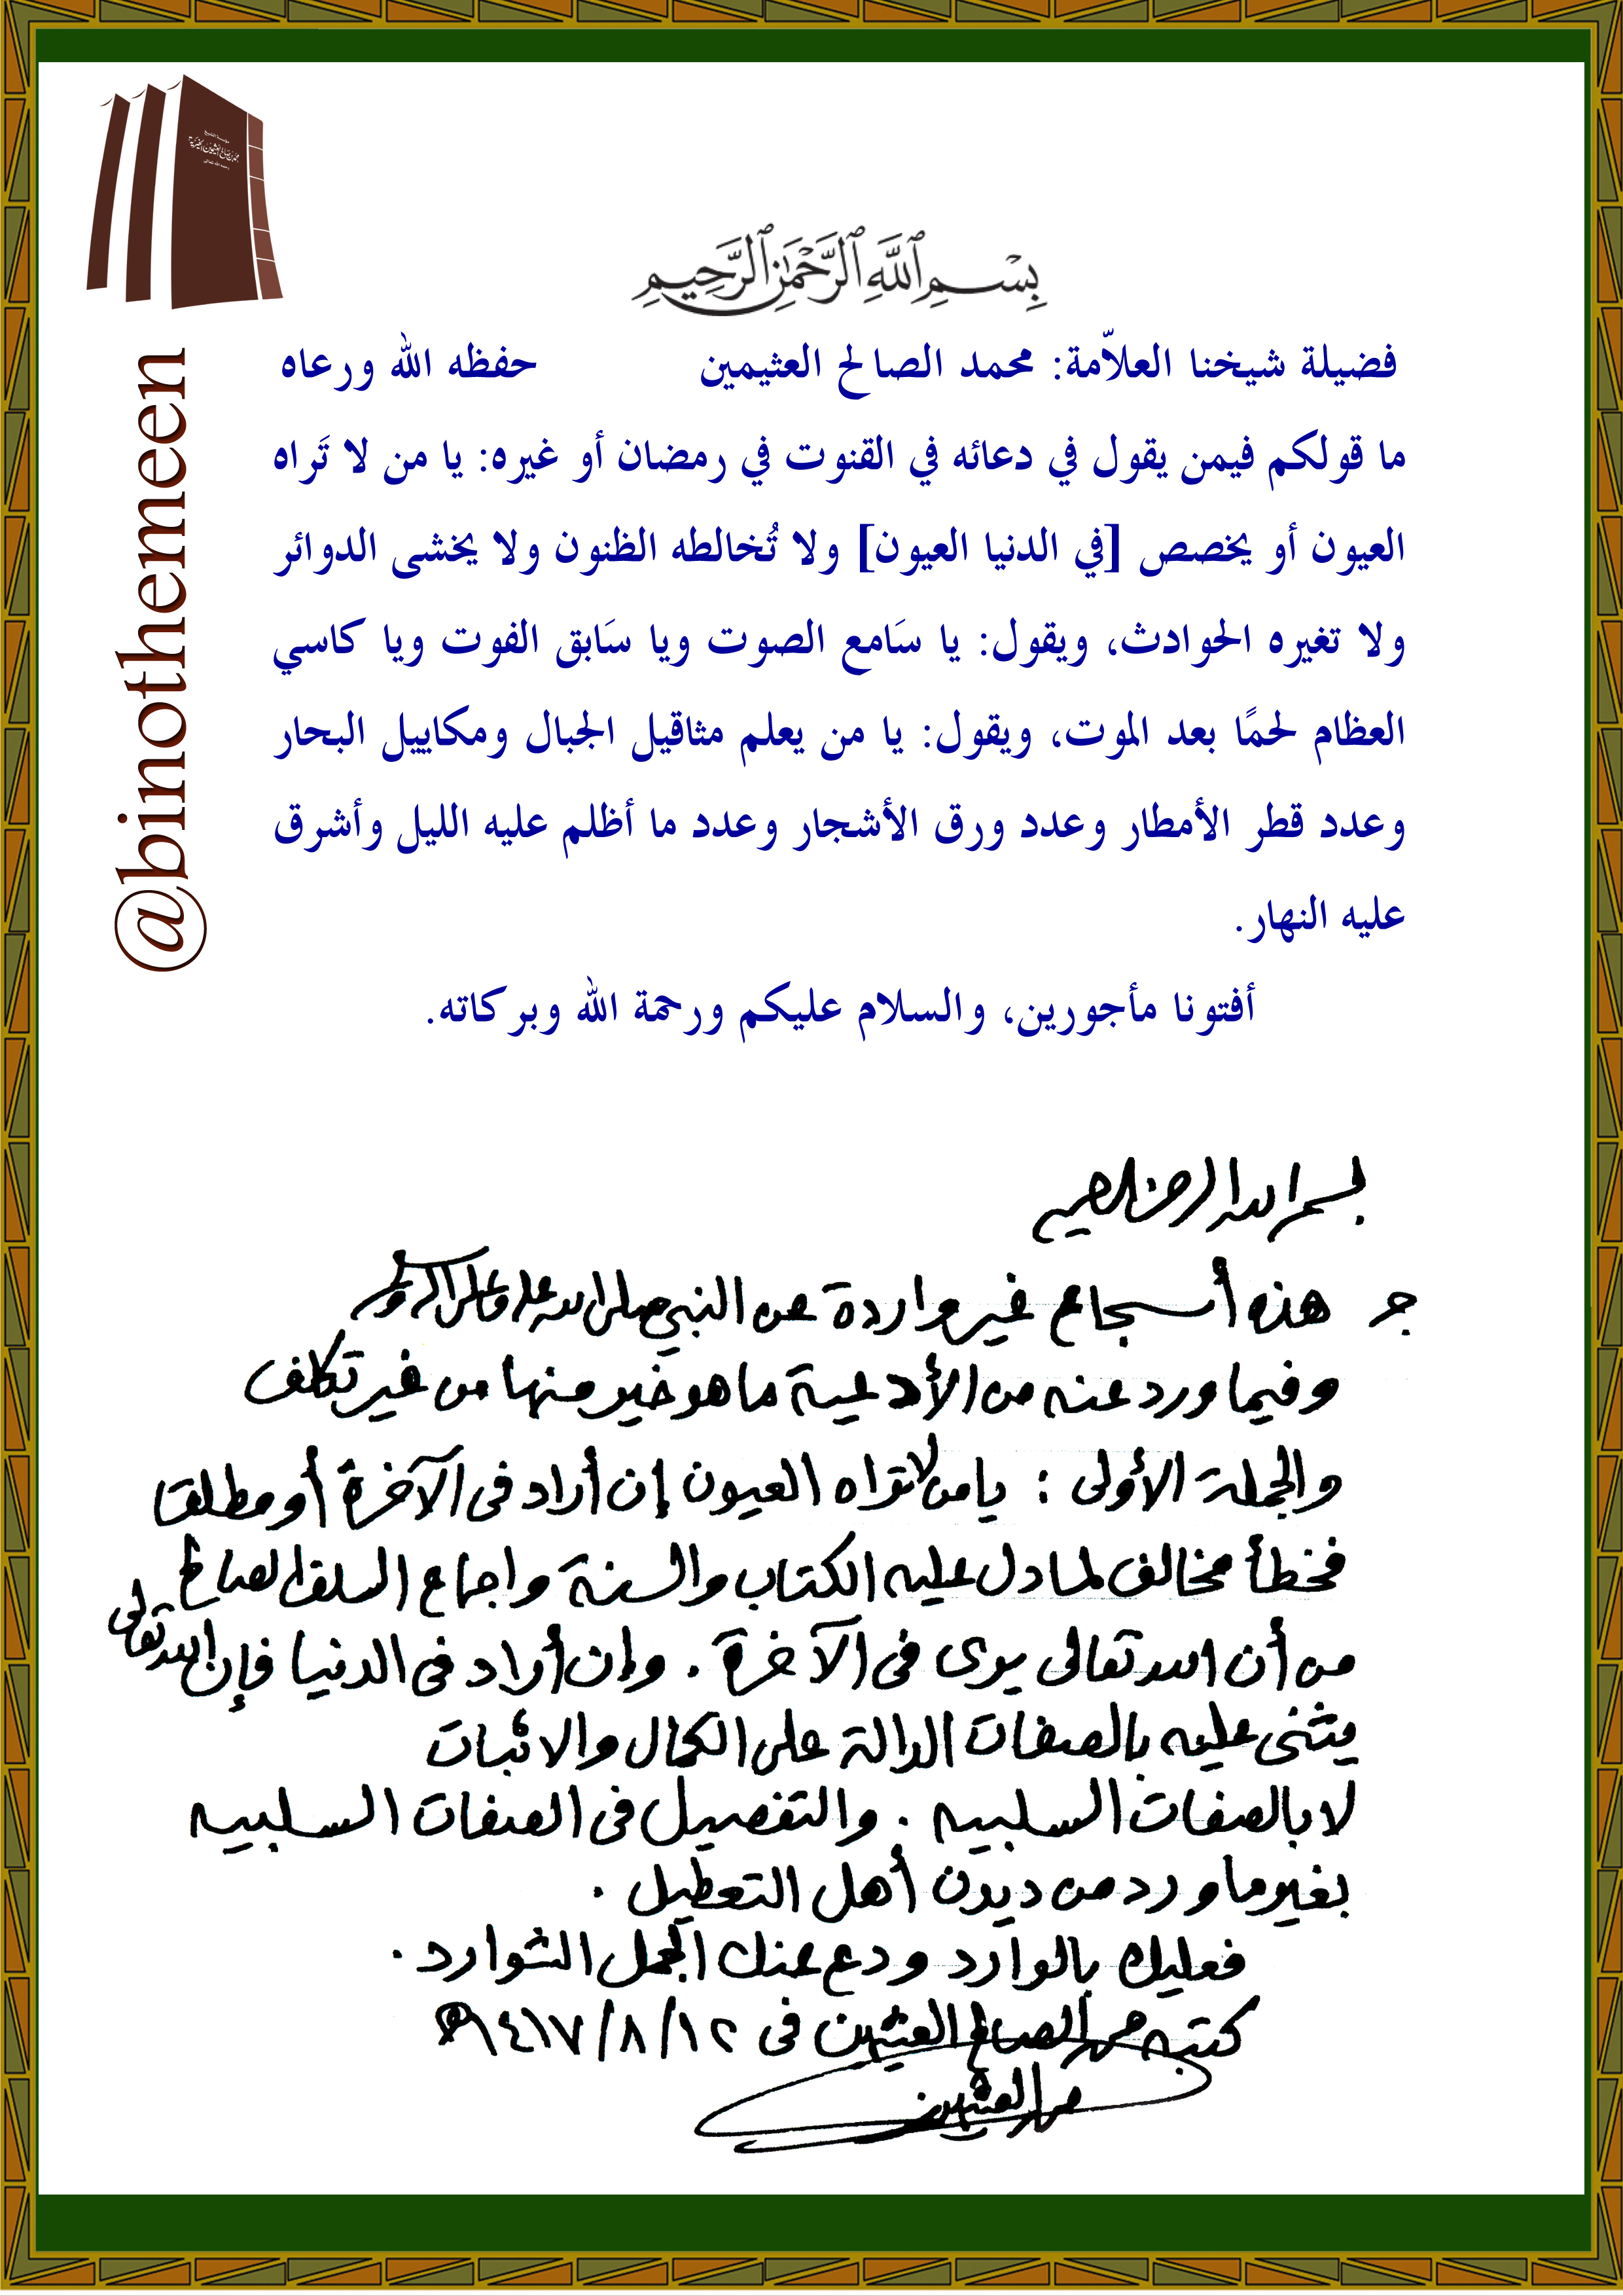 بِسْمِ ٱللَّهِ ٱلرَّحْمَٰنِ ٱلرَّحِيمِ
@binothemeen
فضيلة شيخنا العلاّمة: محمد الصالح العثيمين حفظه الله ورعاه
ما قولكم فيمن يقول في دعائه في القنوت في رمضان أو غيره: يا من لا تَراه
العيون أو يخصص [في الدنيا العيون] ولا تُخالطه الظنون ولا يخشى الدوائر
ولا تغيره الحوادث، ويقول: يا سَامع الصوت ويا سَابق الفوت ويا كاسي
العظام لحمًا بعد الموت، ويقول: يا من يعلم مثاقيل الجبال ومكاييل البحار
وعدد قطر الأمطار وعدد ورق الأشجار وعدد ما أظلم عليه الليل وأشرق
عليه النهار.
أفتونا مأجورين، والسلام عليكم ورحمة الله وبركاته.
بسم الله الرحمن الرحيم
جـ هذه أسجاع غير واردة عن النبي صلى الله عليه وعلى آله وسلم
وفيما ورد عنه من الأدعية ما هو خير منها من غير تكلف
والجملة الأولى : يا من لا تراه العيون إن أراد في الآخرة أو مطلقا
فخطأ مخالف لما دل عليه الكتاب والسنة واجماع السلف الصالح
من أن الله تعالى يرى في الآخرة . وإن أراد في الدنيا فإن الله تعالى
يثنى عليه بالصفات الدالة على الكمال والاثبات
لا بالصفات السلبيه . والتفصيل في الصفات السلبيه
بغير ما ورد من ديدن أهل التعطيل .
فعليك بالوارد ودع عنك الجمل الشوارد .
كتبه محمد الصالح العثيمين في ١٢/٨/١٤١٧هـ
محمد العثيمين